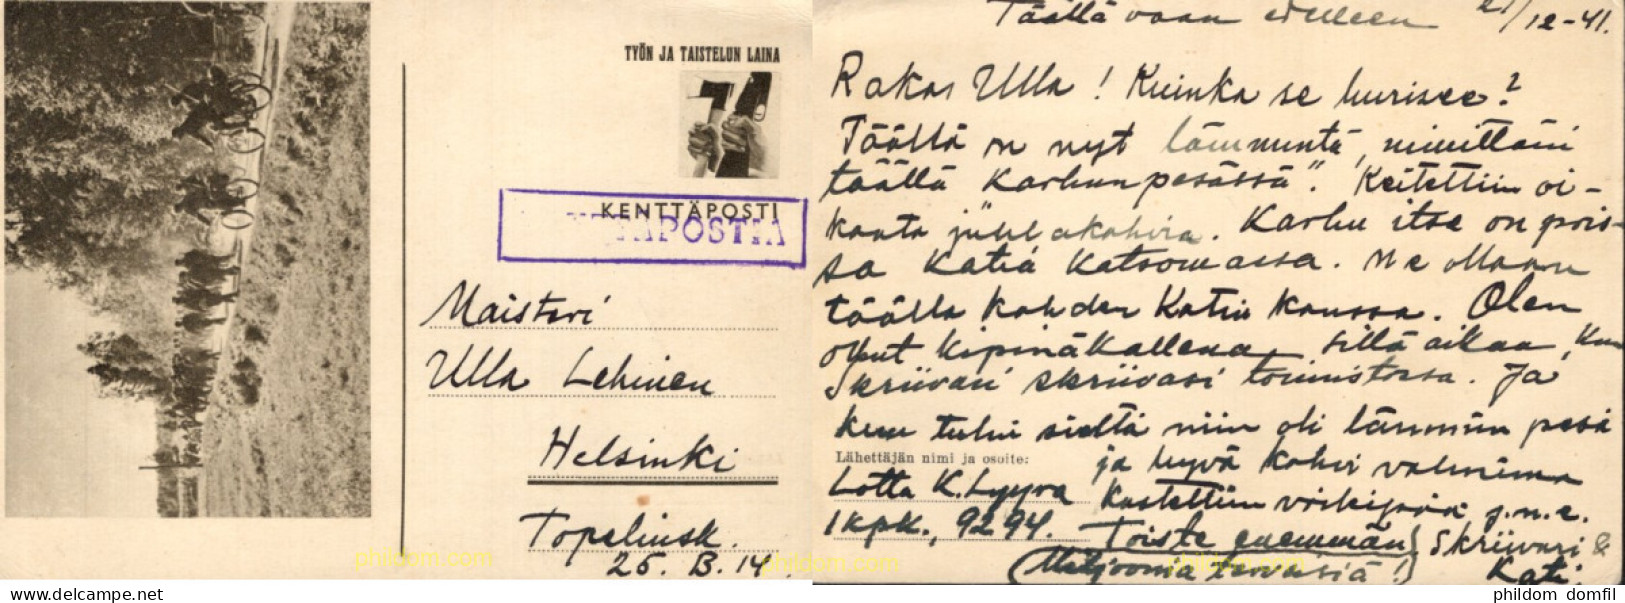 TYÖN JA TAISTELUN LAINA
KENTTÄPOSTI
Maisteri
Ulla Lehinen
Helsinki
Topelinsk.
25. B. 14
Täällä vaan edelleen 21/12-41.
Rakas Ulla! Kuinka se hurisee?
Täällä on nyt lämmintä, nimittäin
täällä "Karhunpesässä". Keitettiin oi-
keata juhlakahvia. Karhu itse on pois-
sa Katia katsomassa. Me ollaan
täällä kahden Katin kanssa. Olen
ollut kipinäkallena sillä aikaa, kun
Skriivari skriivasi toimistossa. Ja
kun tulin sieltä niin oli lämmin pesä
ja hyvä kahvi valmiina
Kastettiin j.n.e.
Lähettäjän nimi ja osoite:
Lotta K. Lyyra
1 KpK., 9294.
Toiste enemmän
(Miljoonia terveisiä!)
Skriivari &
Kati.
phildom.com
phildom.com
phildom.com
phildom.com
www.delcampe.net
phildom domfil